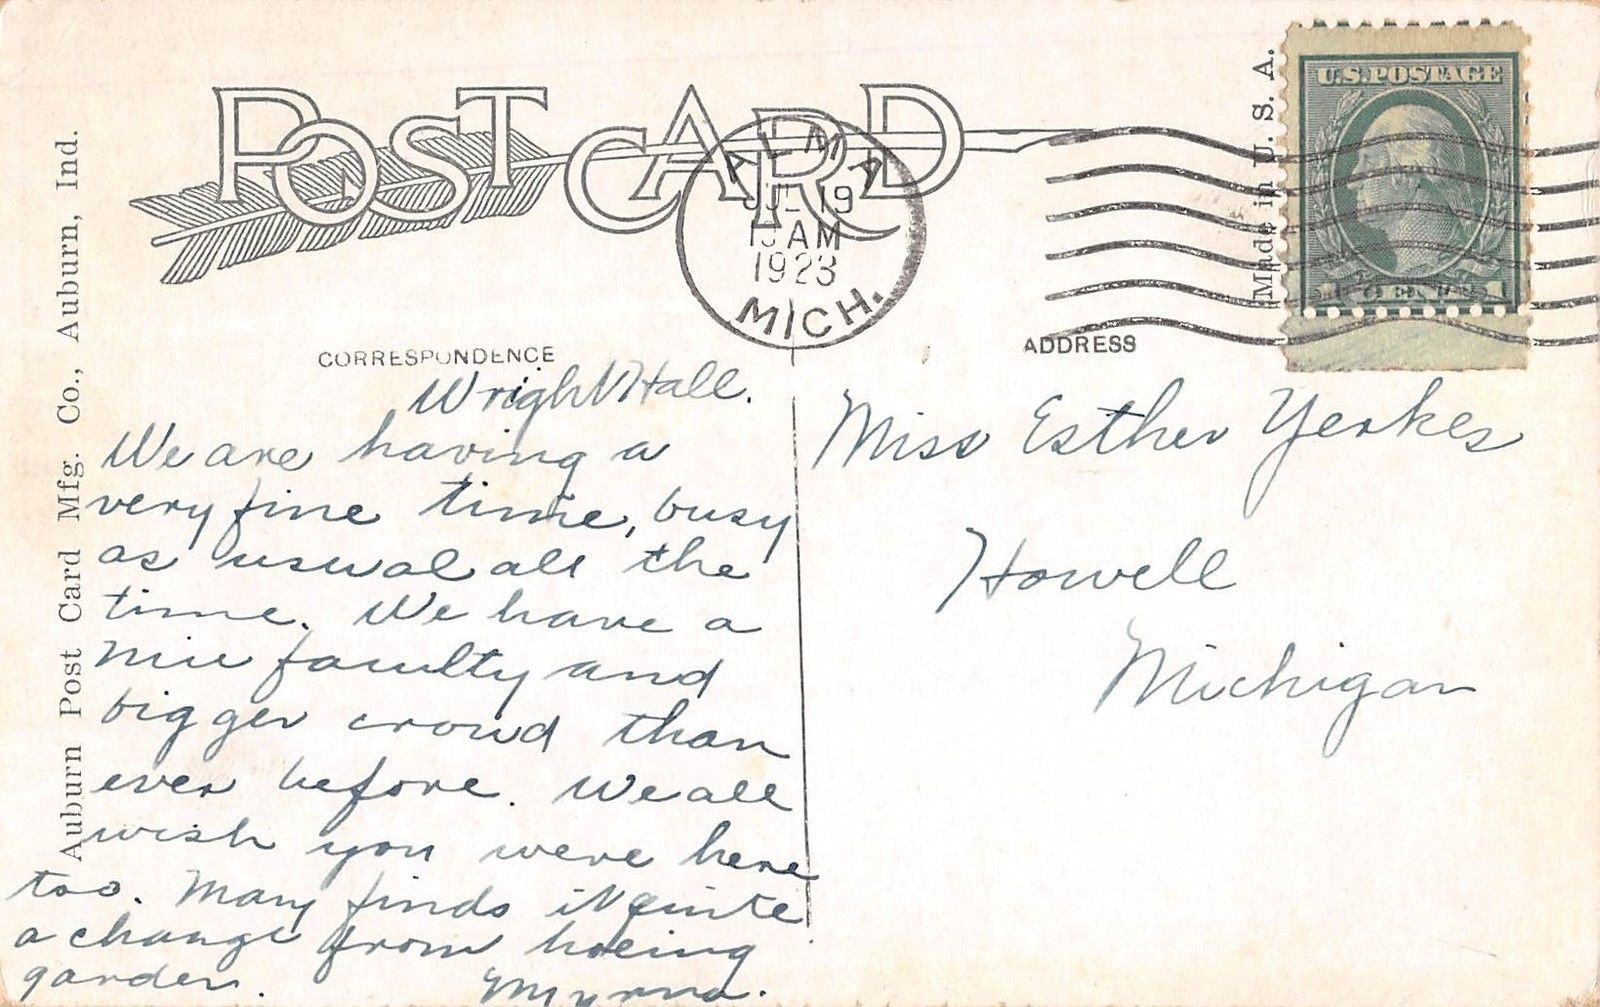 POST CARD
ALMA
JUL 19
AM
1923
MICH.
Made in U. S. A.
U.S. POSTAGE
Auburn Post Card Mfg. Co., Auburn, Ind.
CORRESPONDENCE
ADDRESS
Wright Hall.
We are having a
very fine time, busy
as usual all the
time. We have a
nice faculty and
bigger crowd than
ever before. We all
wish you were here
too. Mary finds it quite
a change from hoeing
garden. Myrna.
Miss Esther Yerkes
Howell
Michigan